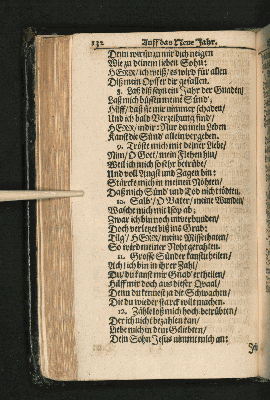 132 Auff das Neue Jahr.
Denn wirstu zu mir dich neigen
Wie zu deinem lieben Sohn:
HErr/ ich weiß/ es wird für allen
Diß mein Opffer dir gefallen.
8. Laß diß seyn ein Jahr der Gnaden/
Laß mich büssen meine Sünd/
Hilff/ daß sie mir nimmer schaden/
Und ich bald Verzeihung find/
HErr/ in dir: Nur du mein Leben
Kanst die Sünd allein vergeben.
9. Tröste mich mit deiner Liebe/
Nim/ O Gott/ mein Flehen hin/
Weil ich mich so sehr betrübe/
Und voll Angst und Zagen bin:
Stärcke mich in meinen Nöhten/
Daß mich Sünd und Tod nicht tödten.
10. Salb/ O Vater/ meine Wunden/
Wasche mich mit Isop ab:
Zwar ich bin noch unverbunden/
Doch verletzet biß ins Grab:
Tilg/ HErr/ meine Missethaten/
So wird meiner Noht gerahten.
11. Grosse Sünder kanstu heilen/
Ach! ich bin in ihrer Zahl/
Du/ du kanst mir Gnad ertheilen/
Hilff mir doch aus dieser Quaal/
Denn du kennest ja die Schwachen/
Die du wieder starck wilt machen.
12. Zähle toß mich hoch-betrübten/
Der ich nicht bezahlen kan/
Liebe mich in dem Geliebten/
Dein Sohn Jesus nimmt mich an: